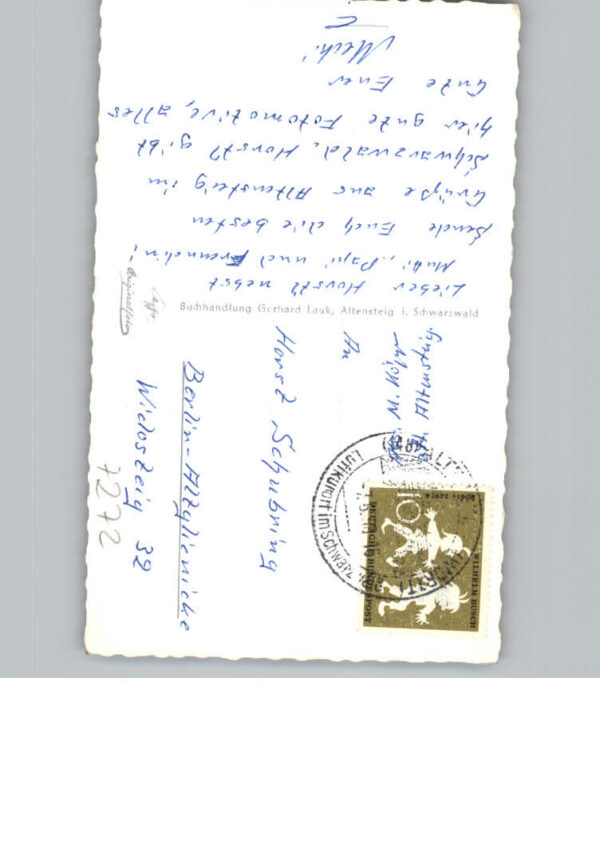 Lieber Horstl nebst
Mutti, Papi und Freundin!
Sende Euch die besten
Grüße aus Altensteig im
Schwarzwald. Horstl gibt
hier gute Fotomotive, alles
Gute Euer
Mecki
Buchhandlung Gerhard Lauk, Altensteig i. Schwarzwald
Originalfoto
An
Horst Schubring
Berlin-Altglienicke
Wieloszeig 32
7272
Luftkurort im Schwarz
WILHELM BUSCH
10
DEUTSCHE BUNDESPOST